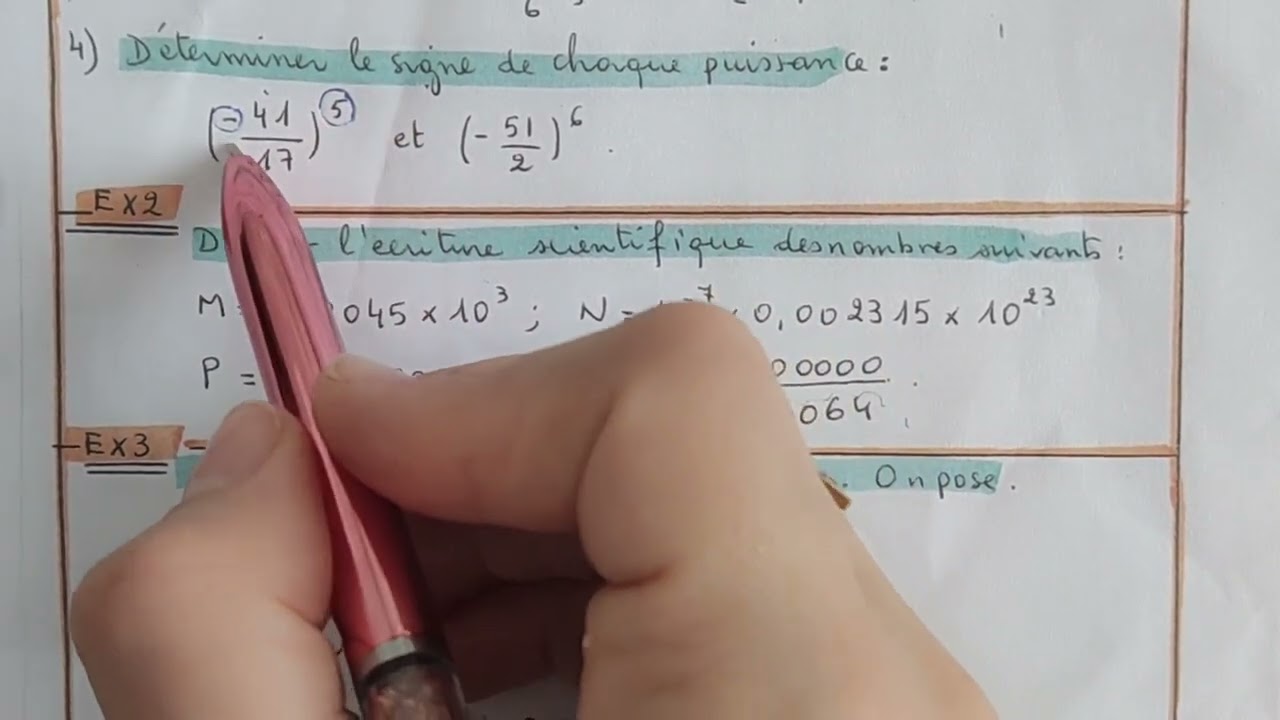 6
4) Déterminer le signe de chaque puissance :
(- 41/17)^5 et (- 51/2)^6 .
EX2
D l'ecriture scientifique des nombres suivants :
M 045 x 10^3 ; N = 7 0,002315 x 10^23
P = 00000/064 .
EX3 -
. On pose .